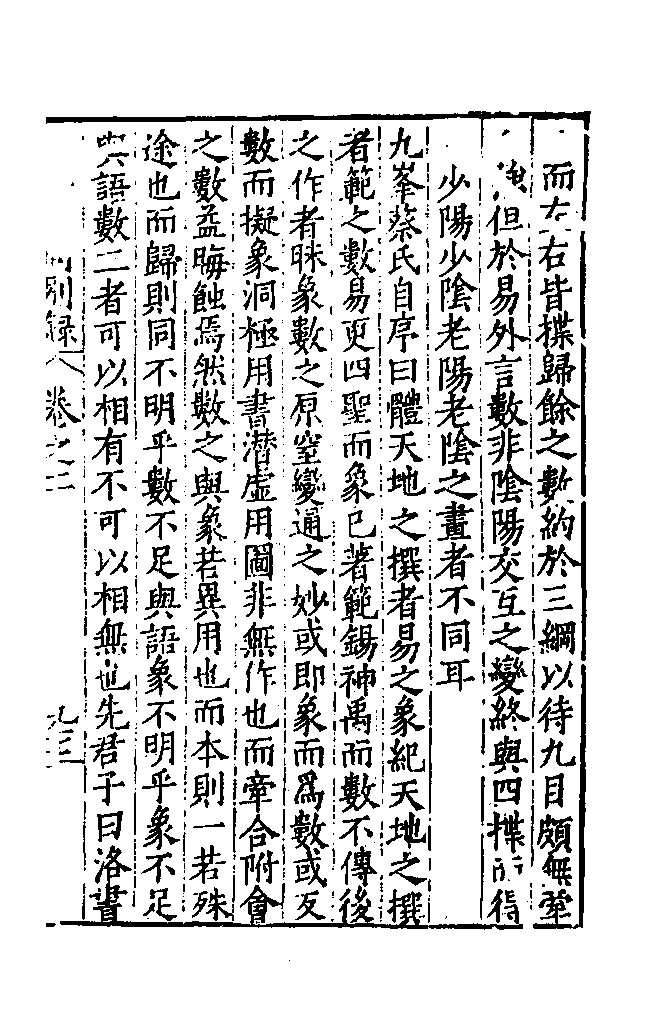 而左右皆揲歸餘之數約於三綱以待九目頗無牽
強但於易外言數非陰陽交互之變終與四揲而得
少陽少陰老陽老陰之畫者不同耳
九峯蔡氏自序曰體天地之撰者易之象紀天地之撰
者範之數易更四聖而象已著範錫神禹而數不傳後
之作者昧象數之原窒變通之妙或即象而爲數或反
數而擬象洞極用書潛虛用圖非無作也而牽合附會
之數益晦蝕焉然數之與象若異用也而本則一若殊
途也而歸則同不明乎數不足與語象不明乎象不足
與語數二者可以相有不可以相無也先君子曰洛書
別録 卷之二